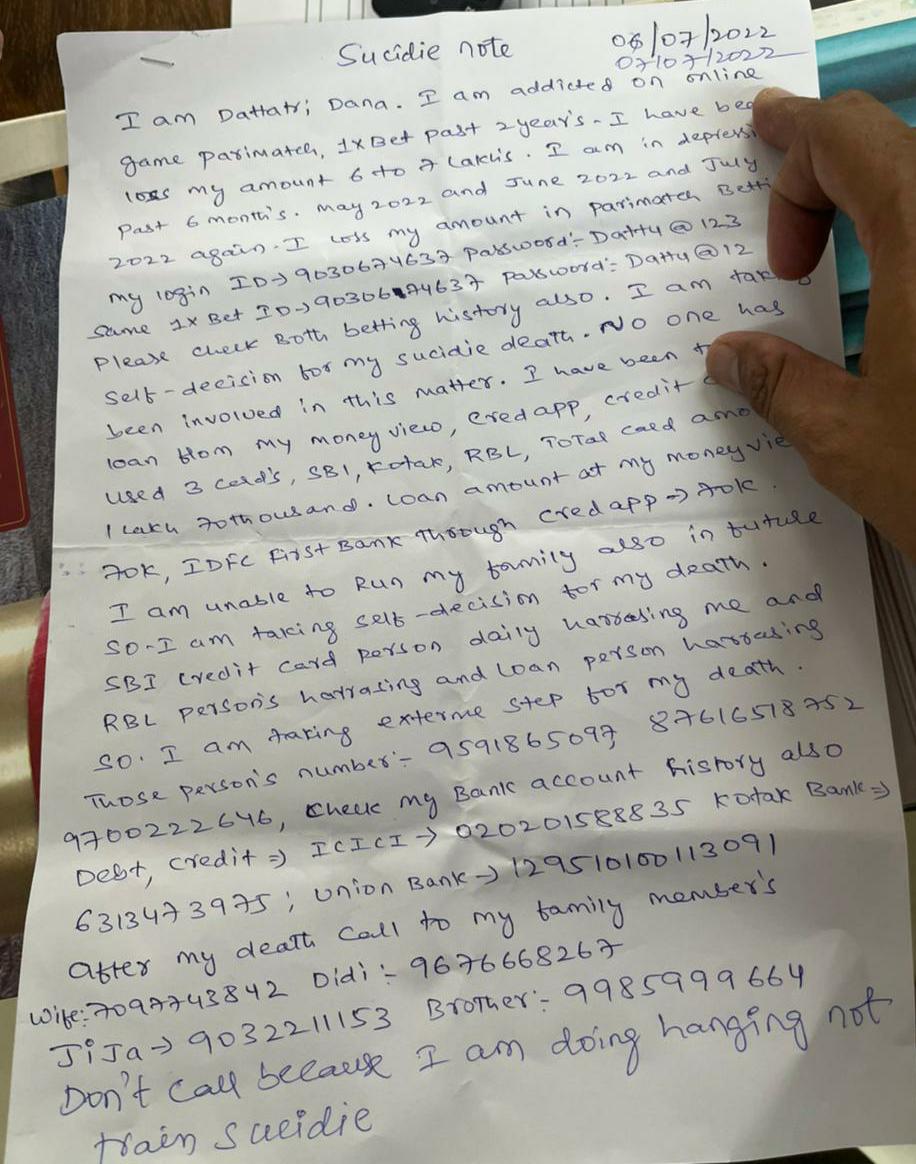 Sucidie note
06/07/2022
07/07/2022
I am Dattatri Dana. I am addicted on online
game parimatch, 1xBet past 2 year's. I have
loss my amount 6 to 7 Lakhs. I am in
past 6 month's. May 2022 and June 2022 and July
2022 again. I loss my amount in parimatch
my login ID→ 9030674637 password:- Datty@123
Same 1x Bet ID→ 9030674637 password:- Datty@12
Please check Both betting history also. I am
self-decision for my sucidie death. No one has
been involved in this matter. I have been
loan from my money view, cred app, credit
used 3 card's, SBI, Kotak, RBL, Total card
1 Lakh 70 thousand. loan amount at my
70k, IDFC First Bank through cred app → 70k.
I am unable to Run my family also in future
So-I am taking self-decision for my death.
SBI credit card person daily harrasing me and
RBL person's harrasing and loan person harrasing
So. I am taking exterme step for my death.
Those person's number:- 9591865097, 87616518752
9700222646, check my Bank account history also
Debt, credit ⇒ ICICI → 020201588835 Kotak Bank ⇒
6313473975; Union Bank → 129510100113091
after my death call to my family member's
Wife:- 7097743842 Didi:- 9676668267
JiJa → 9032211153 Brother:- 9985999664
Don't call because I am doing hanging not
train sucidie